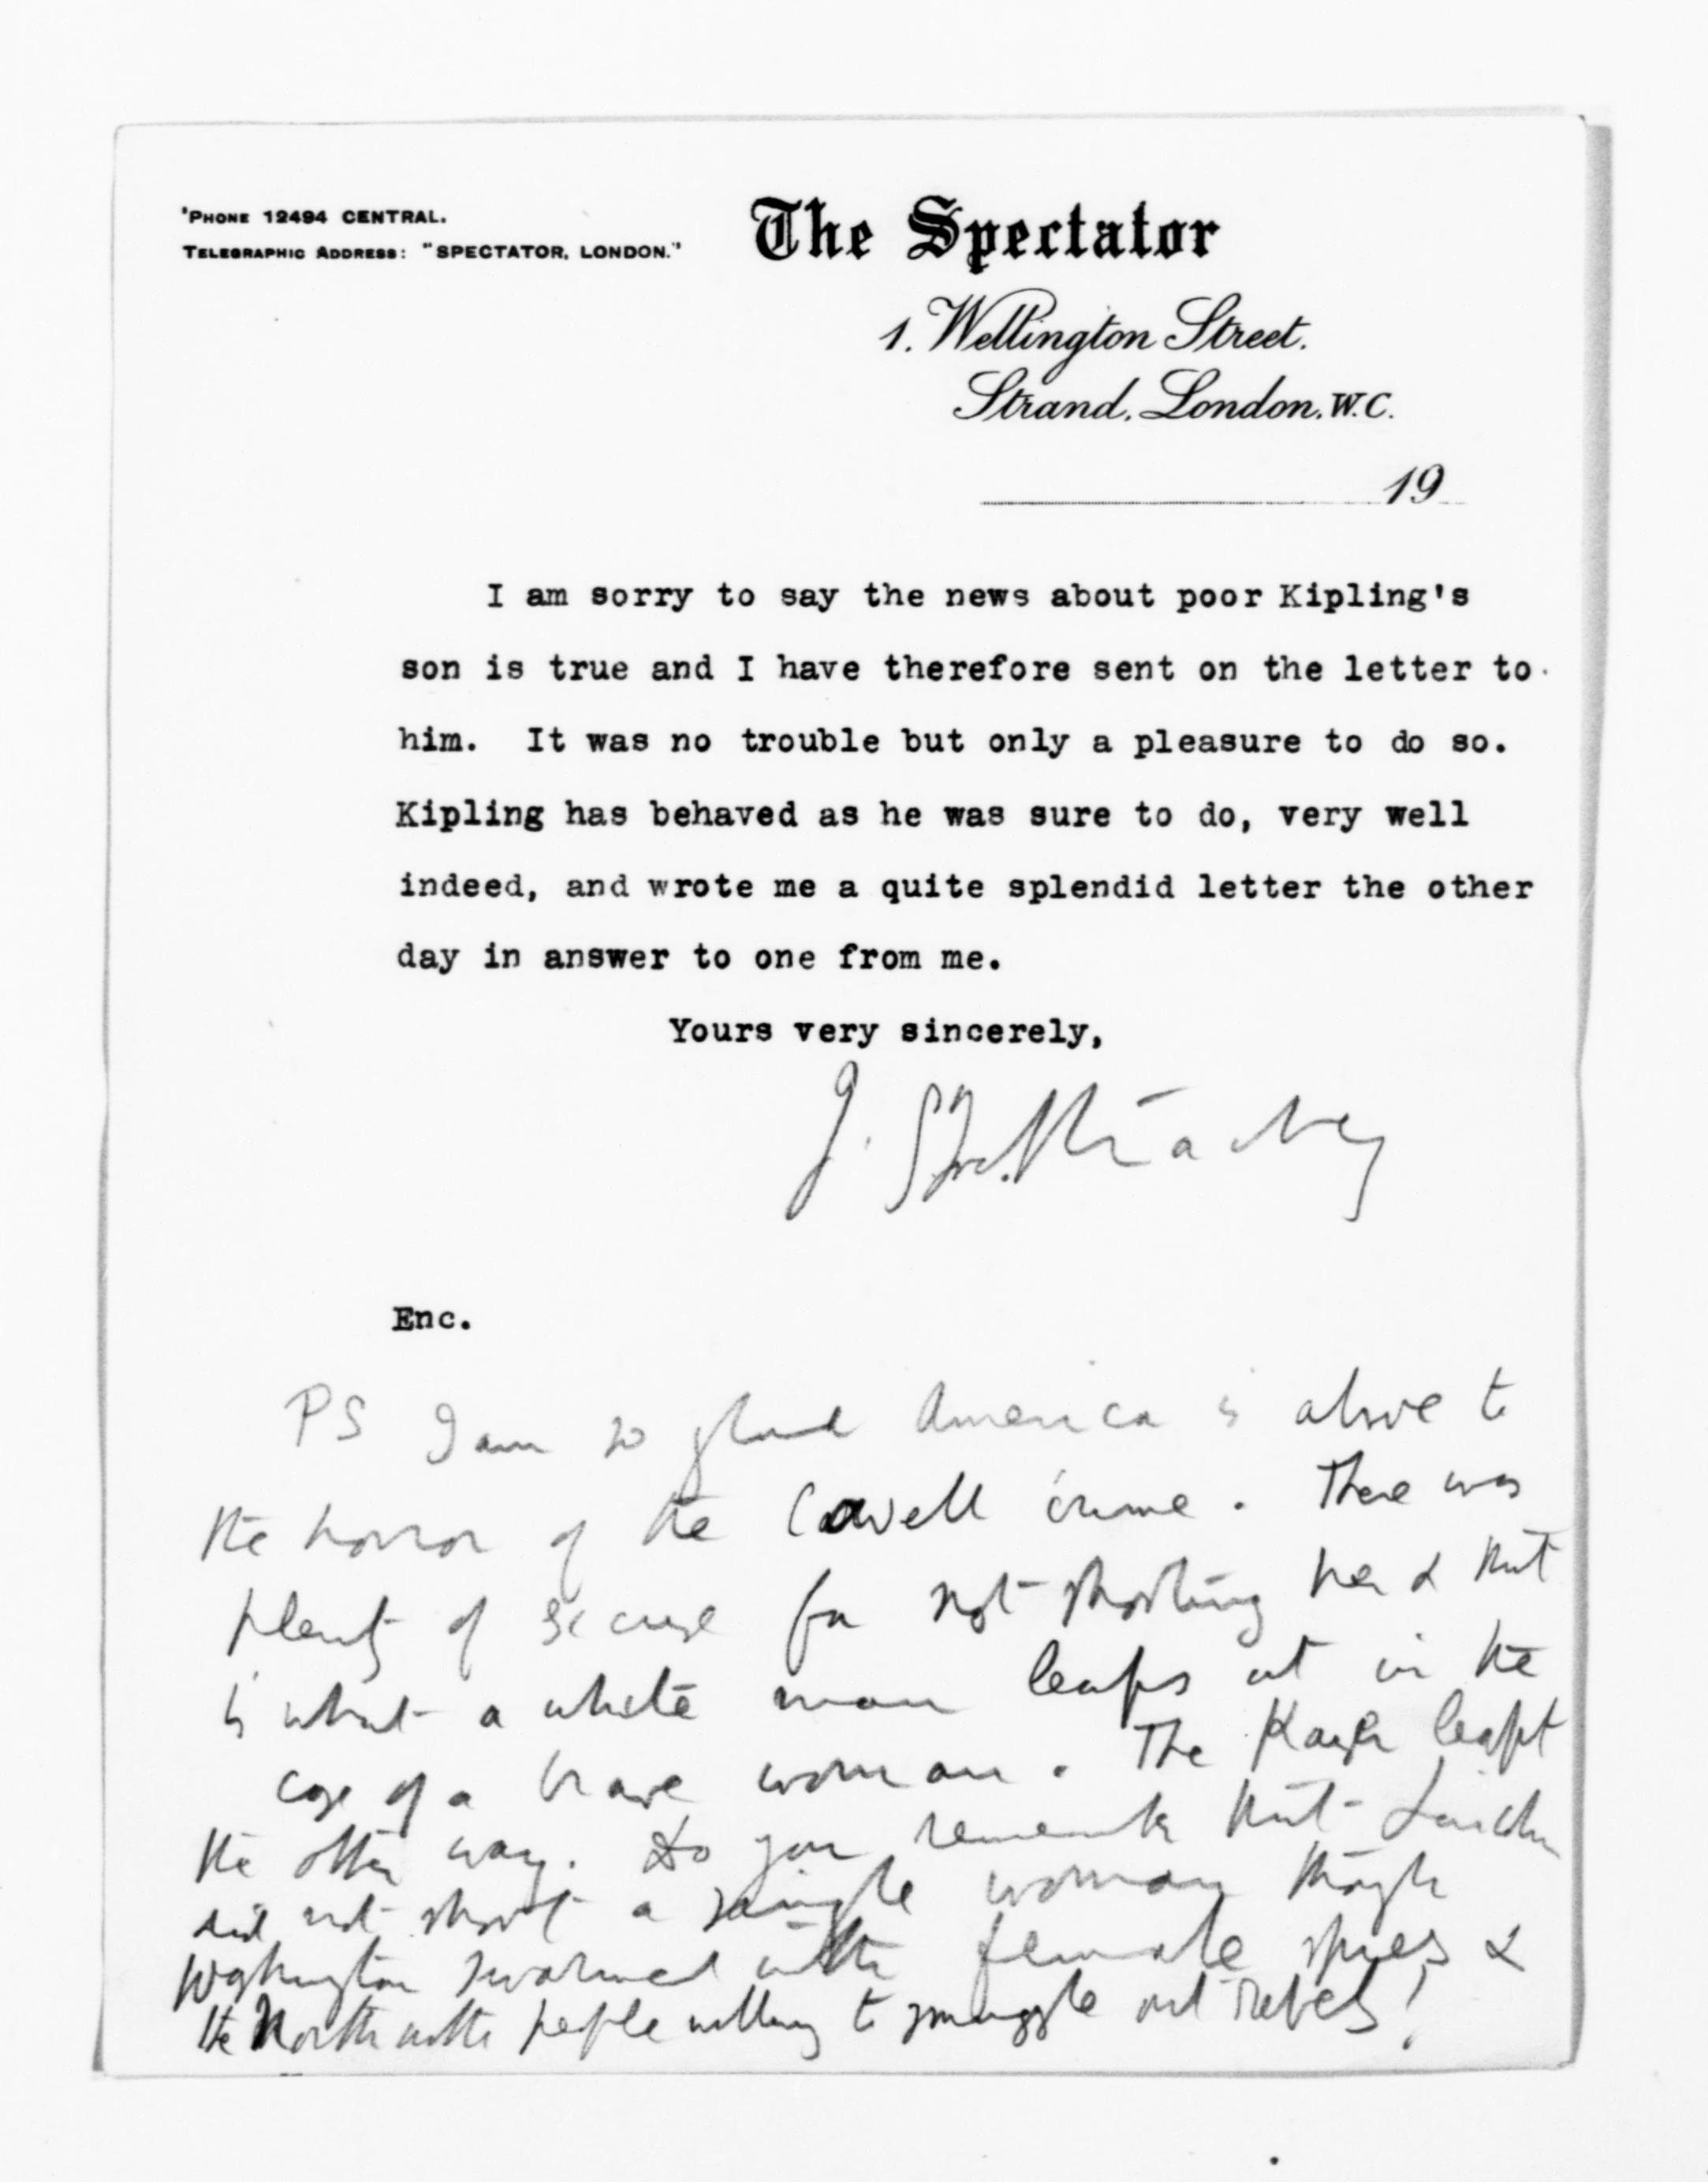 'PHONE 12494 CENTRAL.
TELEGRAPHIC ADDRESS: "SPECTATOR, LONDON."
The Spectator
1. Wellington Street.
Strand, London. W.C.
19
I am sorry to say the news about poor Kipling's
son is true and I have therefore sent on the letter to
him. It was no trouble but only a pleasure to do so.
Kipling has behaved as he was sure to do, very well
indeed, and wrote me a quite splendid letter the other
day in answer to one from me.
Yours very sincerely,
J. St Loe Strachey
Enc.
PS I am so glad America is alive to
the horror of the Cavell crime. There was
plenty of excuse for not shooting her & that
is what a white man leaps at in the
case of a brave woman. The Kaiser leapt
the other way. Do you remember that Lincoln
did not shoot a single woman though
Washington swarmed with female spies &
the North with people willing to smuggle out rebels!